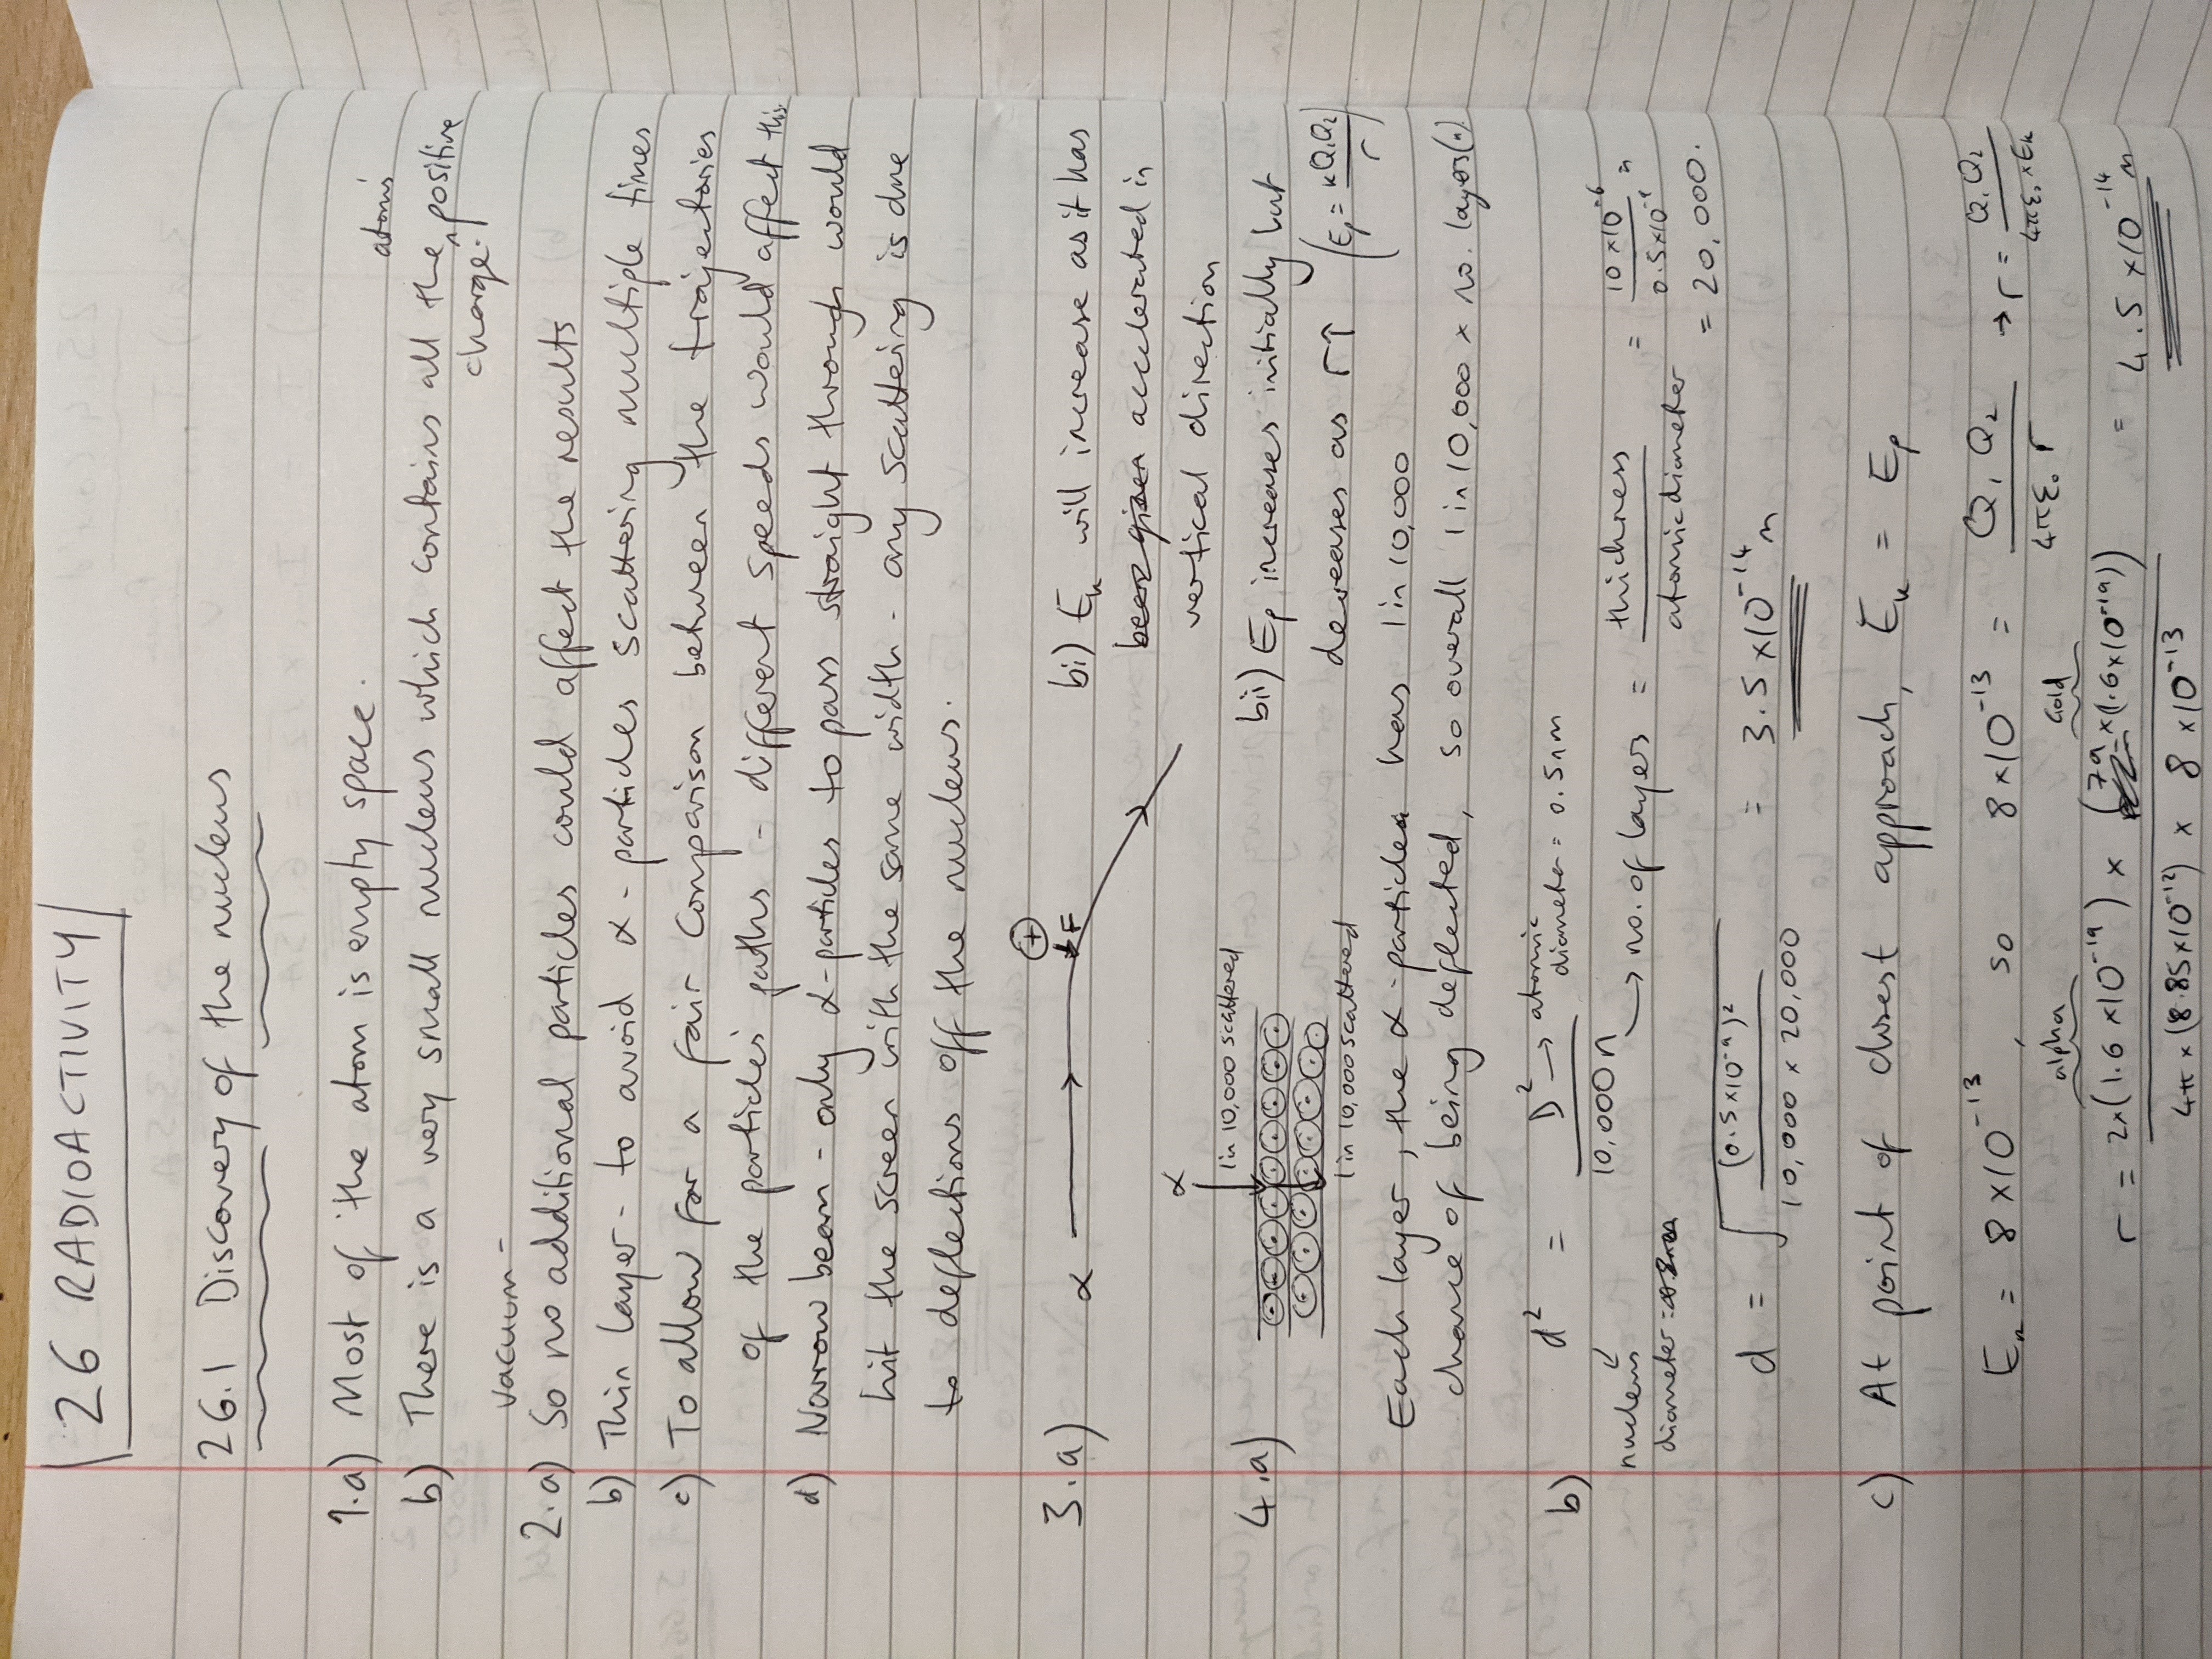 26 RADIOACTIVITY
26.1 Discovery of the nucleus
1.a) Most of the atom is empty space.
b) There is a very small nucleus which contains all the atom's positive
charge.
vacuum -
2.a) So no additional particles could affect the results
b) Thin layer - to avoid α-particles scattering multiple times
c) To allow for a fair comparison between the trajectories
of the particles' paths - different speeds would affect this.
d) Narrow beam - only α-particles to pass straight through would
hit the screen with the same width - any scattering is due
to deflections off the nucleus.
3.a) α
+
F
bi) Ek will increase as it has
been given accelerated in
vertical direction
bii) Ep increases initially but
decreases as r↑ (Ep = kQ1Q2/r)
4.a) α
1 in 10,000 scattered
1 in 10,000 scattered
Each layer, the α-particle has 1 in 10,000
chance of being deflected, so overall 1 in 10,000 x no. layers(n)
b) d² = D²/10,000n → atomic diameter = 0.5nm
nucleus diameter
→ no. of layers = thickness/atomic diameter = 10 x10⁻⁶/0.5x10⁻⁹ m
= 20,000.
d = √((0.5x10⁻⁹)²/10,000 x 20,000) = 3.5 x10⁻¹⁴ m
c) At point of closest approach, Ek = Ep
Ek = 8 x10⁻¹³, so 8x10⁻¹³ = Q1Q2/4πε₀r → r = Q1Q2/4πε₀ x Ek
alpha gold
r = 2x(1.6 x10⁻¹⁹) x (79 x(1.6x10⁻¹⁹))/4π x (8.85x10⁻¹²) x 8 x10⁻¹³ = 4.5 x10⁻¹⁴ m